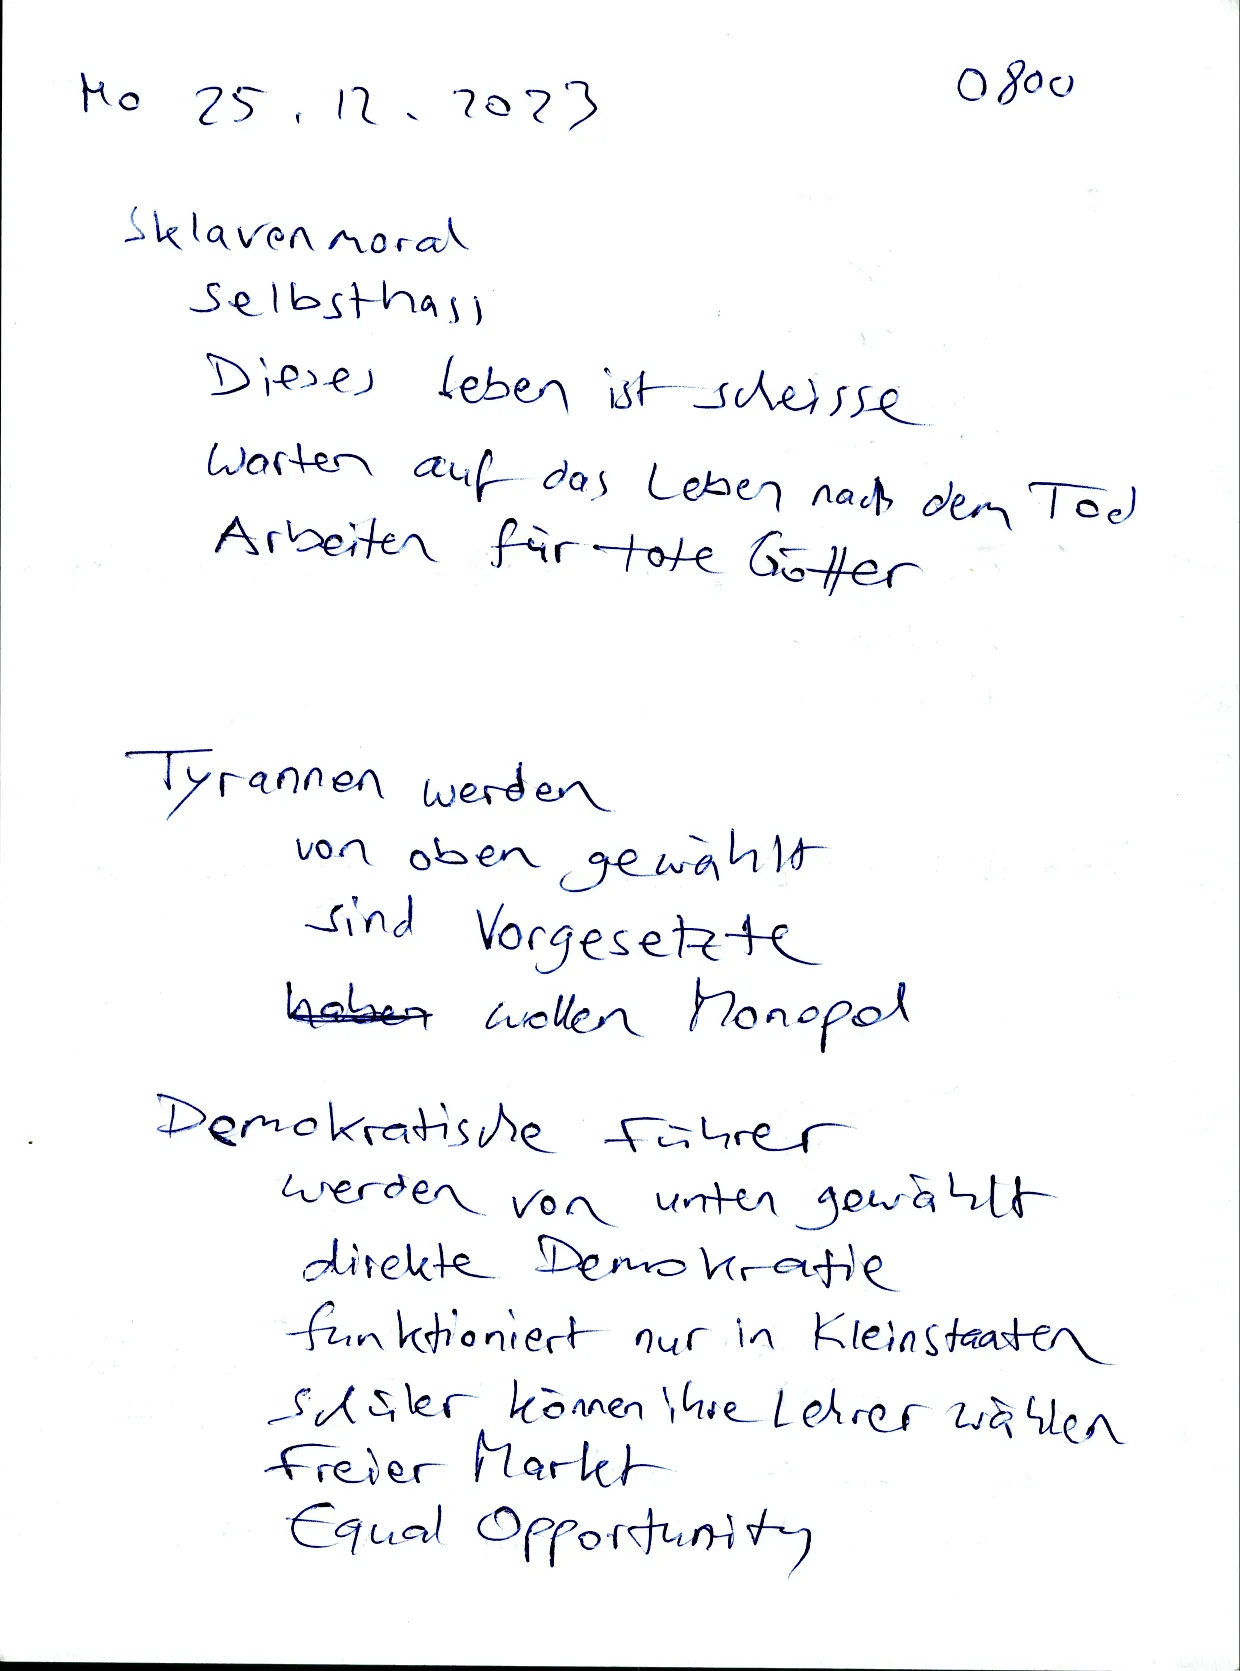 Mo 25.12.2023 0800
Sklavenmoral
Selbsthass
Dieses Leben ist scheisse
Warten auf das Leben nach dem Tod
Arbeiten für tote Götter
Tyrannen werden
von oben gewählt
sind Vorgesetzte
haben wollen Monopol
Demokratische Führer
werden von unten gewählt
direkte Demokratie
funktioniert nur in Kleinstaaten
Schüler können ihre Lehrer wählen
Freier Markt
Equal Opportunity